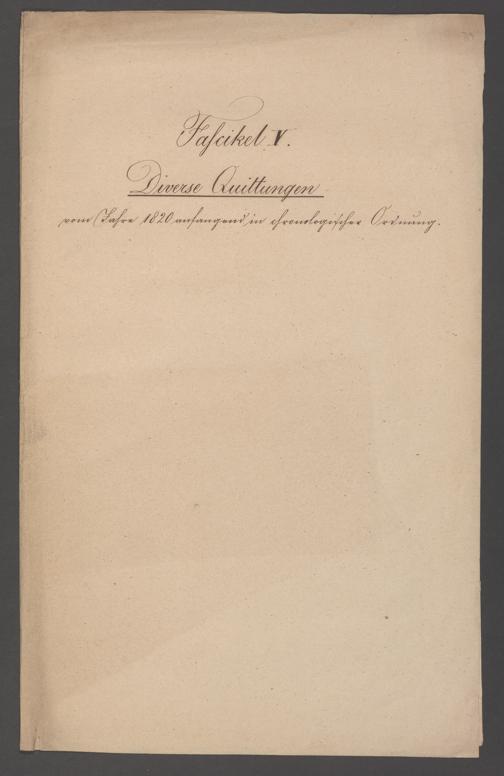 Fascikel V.
Diverse Quittungen
vom Jahre 1820 anfangend, in chronologischer Ordnung.